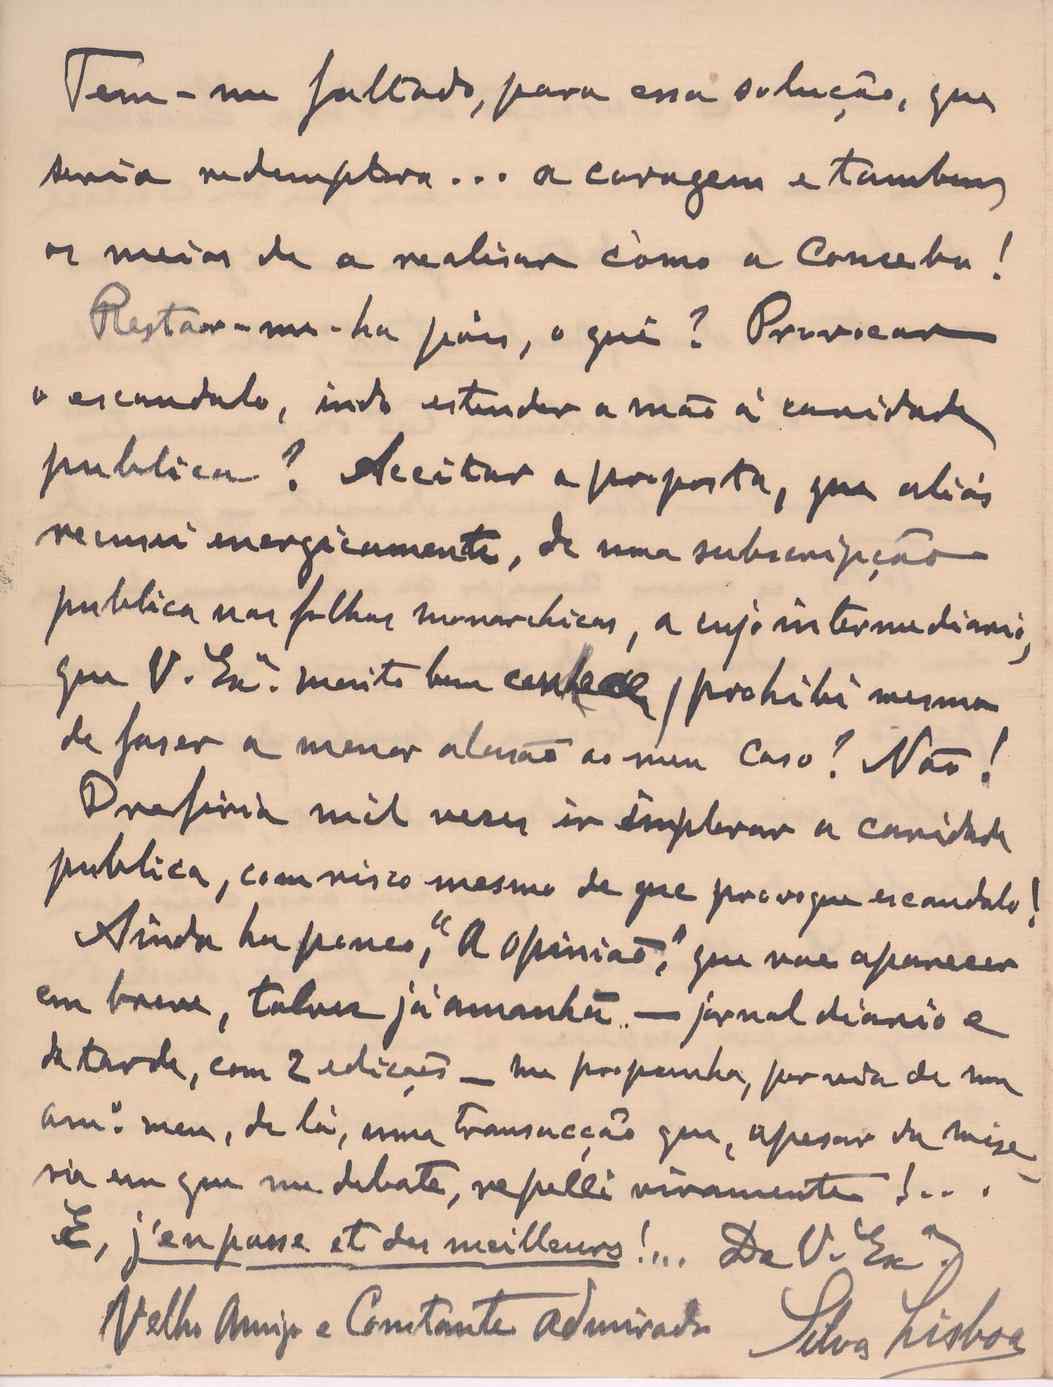 Tem-me faltado, para essa solução, que
seria redemptora... a coragem e tambem
os meios de a realisar como a concebo!
Restar-me-ha pois, o quê? Provocar
o escandalo, indo estender a mão á caridade
publica? Acceitar a proposta, que aliás
recusei energicamente, de uma subscripção
publica nas folhas monarchicas, a cujo intermediario,
que V. Exª. muito bem conhece, prohibi mesmo
de faser a menor alusão ao meu caso? Não!
Preferiria mil veses ir implorar a caridade
publica, com risco mesmo de que provoque escandalo!
Ainda ha pouco, "A Opinião," que vae aparecer
em breve, talvez já amanhã — jornal diario e
da tarde, com 2 edições — me propunha, por via de um
amº. meu, de lá, uma transacção que, apesar da mise-
ria em que me debato, repelli vivamente!...
E, j'en passe et des meilleurs!... De V. Exª.
Velho Amigo e Constante admirador Silva Lisboa